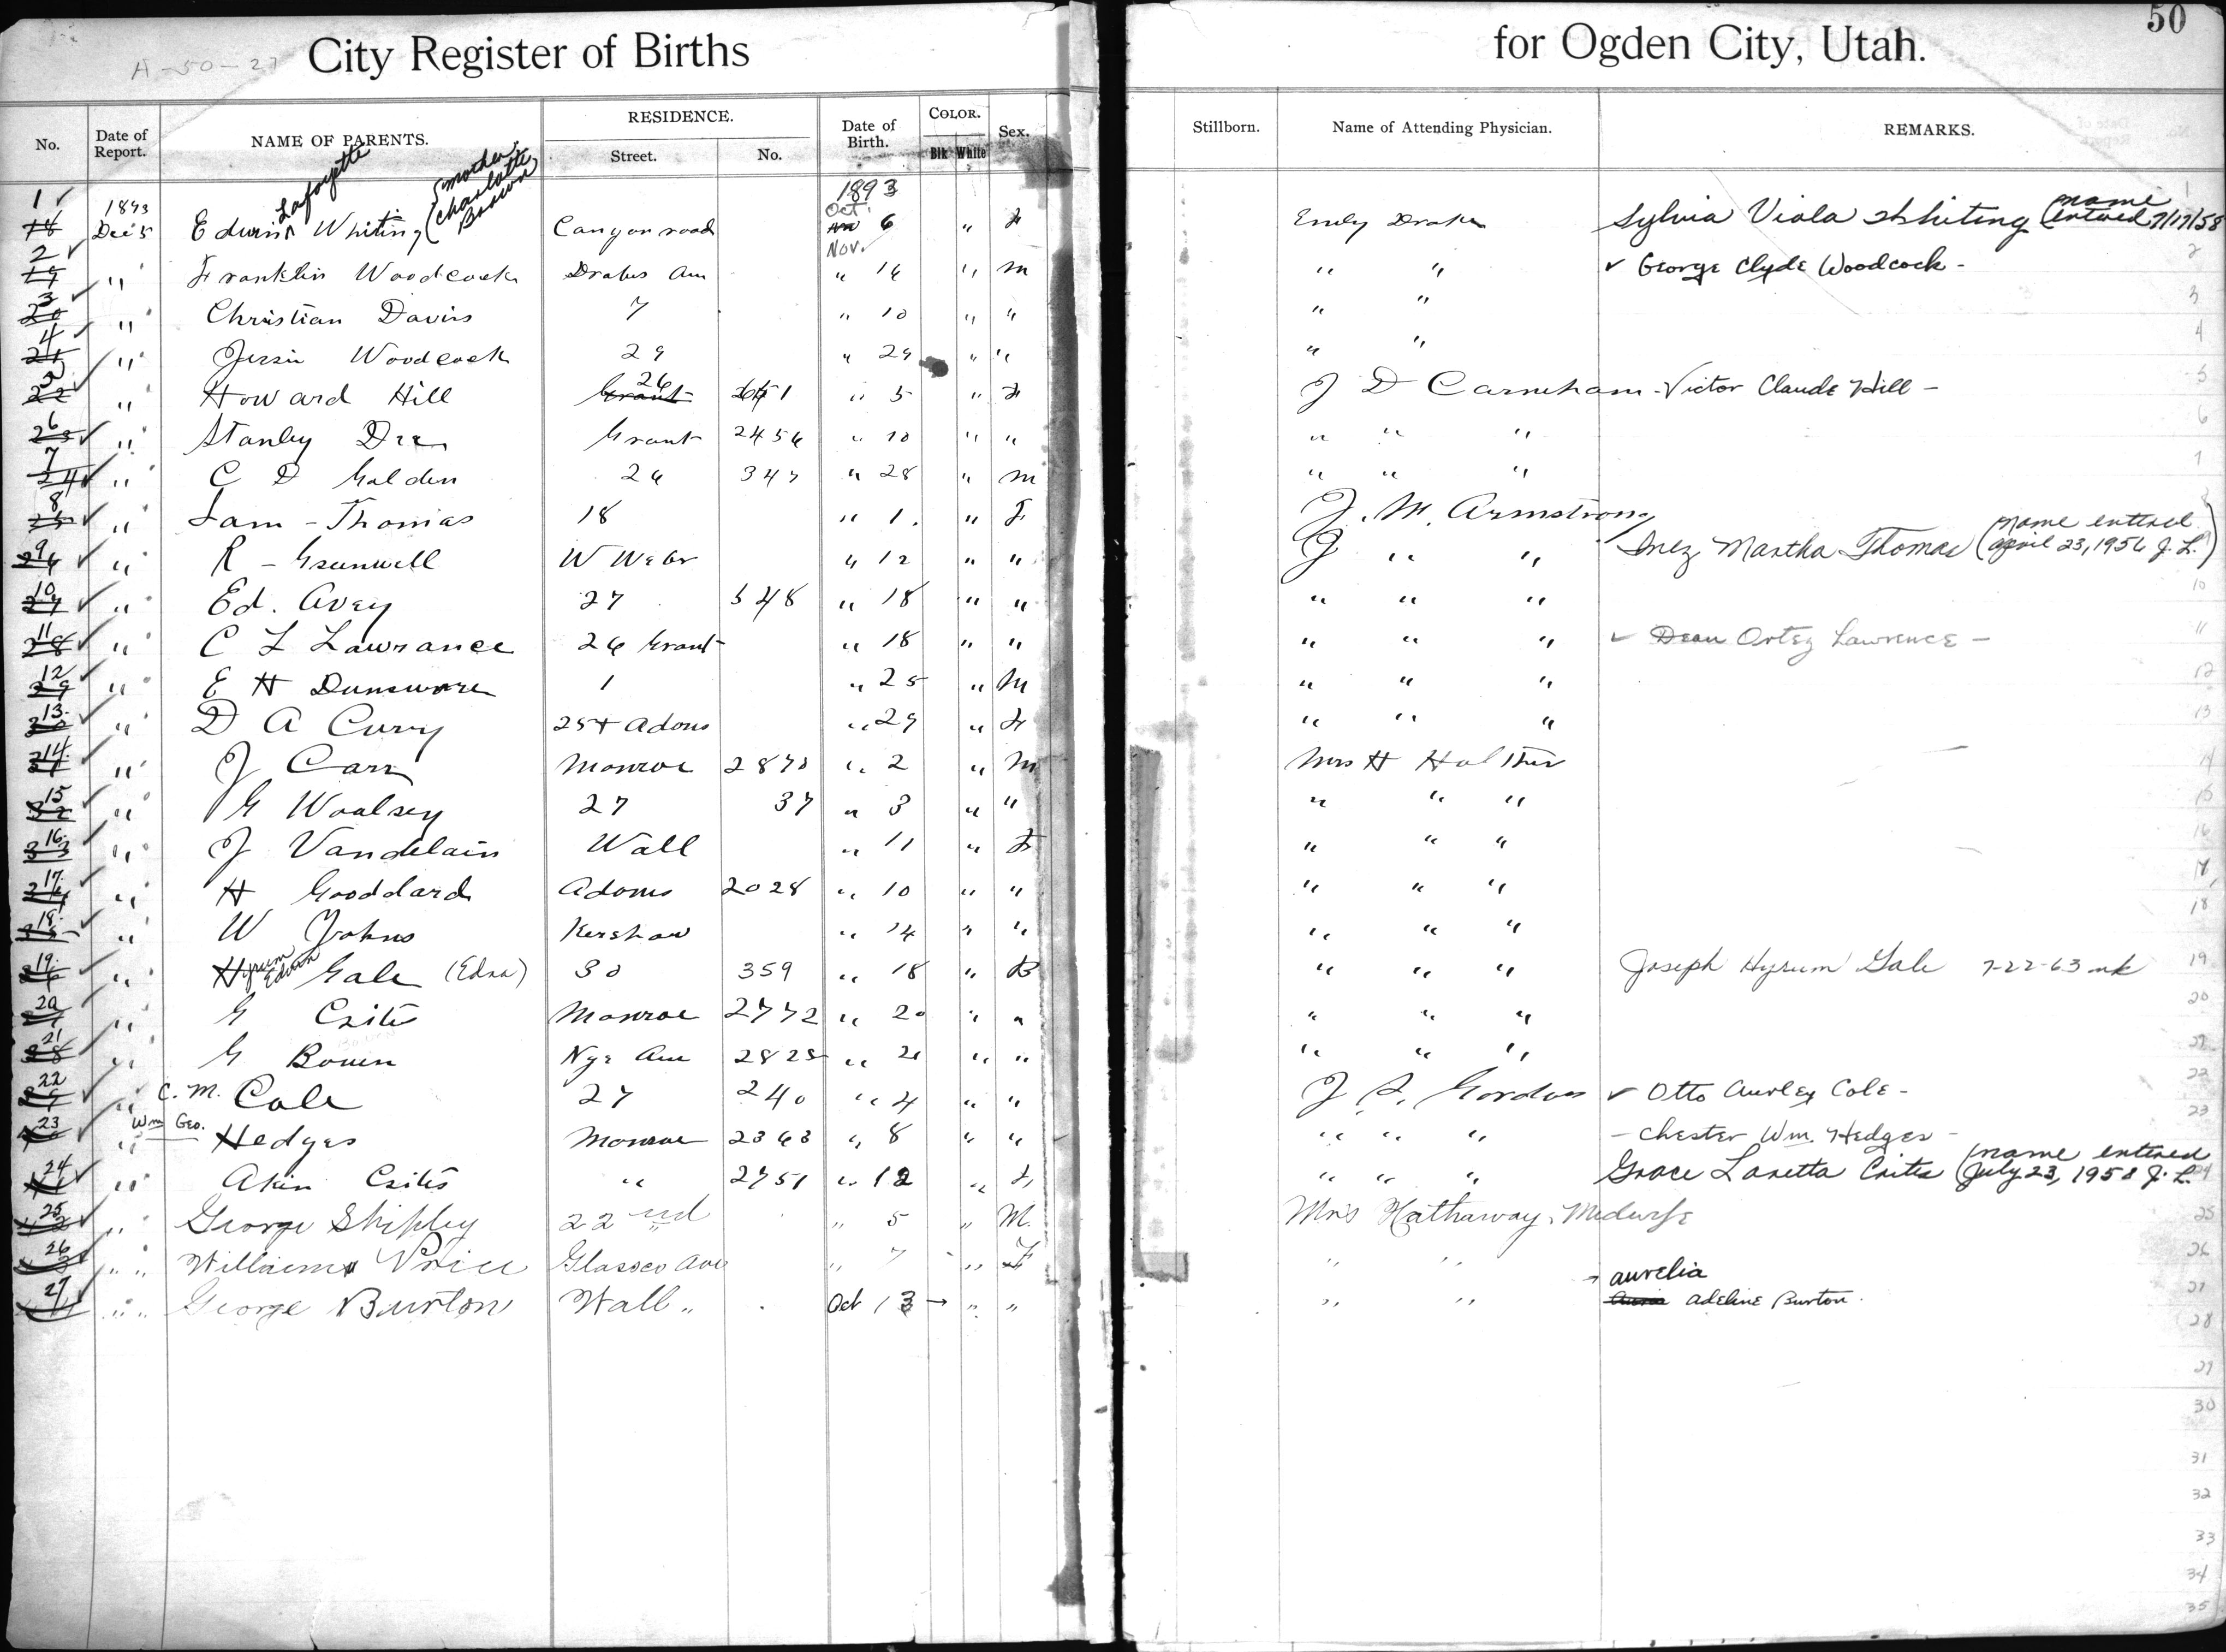 50
A-50-27
City Register of Births for Ogden City, Utah.
No. Date of Report. NAME OF PARENTS. RESIDENCE. Street. No. Date of Birth. COLOR. Blk White Sex. Stillborn. Name of Attending Physician. REMARKS.
1 18 1893 Dec 5 Edwin Lafayette Whiting (mother, Charlotte Brown) Canyon road 1893 Oct. 6 " F Emly Drake Sylvia Viola Whiting (name entered 7/17/58
2 19 " Franklin Woodcock Drakes Ave Nov. " 16 " M " " George Clyde Woodcock -
3 20 " Christian Davis 7 " 10 " " " "
4 21 " Jessie Woodcock 29 " 29 " " " "
5 22 " Howard Hill Grant 26 " 5 " F J D Carnahan - Victor Claude Hill -
6 23 " Stanley Dee Grant 2456 " 10 " " " " "
7 24 " C D Golden 26 347 " 28 " M " " "
8 25 " Sam - Thomas 18 " 1. " F J. M. Armstrong
9 26 " R - Greenwell W Weber " 12 " " J " " Inez Martha Thomas (name entered april 23, 1956 J. L.)
10 27 " Ed. Avey 27 548 " 18 " " " " "
11 28 " C L Lawrance 26 Grant " 18 " " " " " Dean Ortez Lawrence -
12 29 " E H Dunsware 1 " 25 " M " " "
13. 30 " D A Curry 25 + Adams " 29 " F " " "
14. 31 " J Carr Monroe 2870 " 2 " M Mrs H Halther
15 32 " G Woolsey 27 37 " 3 " " " " "
16. 33 " J Vandelain Wall " 11 " F " " "
17. " H Gooddard Adams 2028 " 10 " " " " "
18. " W Johns Kershaw " 14 " " " " "
19. " Hyrum Edwin Gale (Edna) 30 359 " 18 " B " " " Joseph Hyrum Gale 7-22-63 mk
20 " G Crites Monroe 2772 " 20 " " " " "
21 " G Bowen Nye Ave 2825 " 21 " " " " "
22 " C. M. Cole 27 240 " 4 " " J. S. Gordon Otto Aurley Cole -
23 " Wm Geo. Hedges Monroe 2363 " 8 " " " " " - Chester Wm. Hedges -
24 " Akin Crites " 2751 " 12 " F " " " Grace Loretta Crites (name entered July 23, 1958 J. L.
25 " George Shipley 22nd " 5 " M. Mrs Hathaway, Midwife
26 " " William Price Glasgo Ave " 7 " F " "
27 " " George Burton Wall " Oct 13 → " " " " aurelia Adeline Burton.
1
2
3
4
5
6
7
10
11
12
13
14
15
16
17
18
19
20
22
23
24
25
26
27
28
29
30
31
32
33
34
35